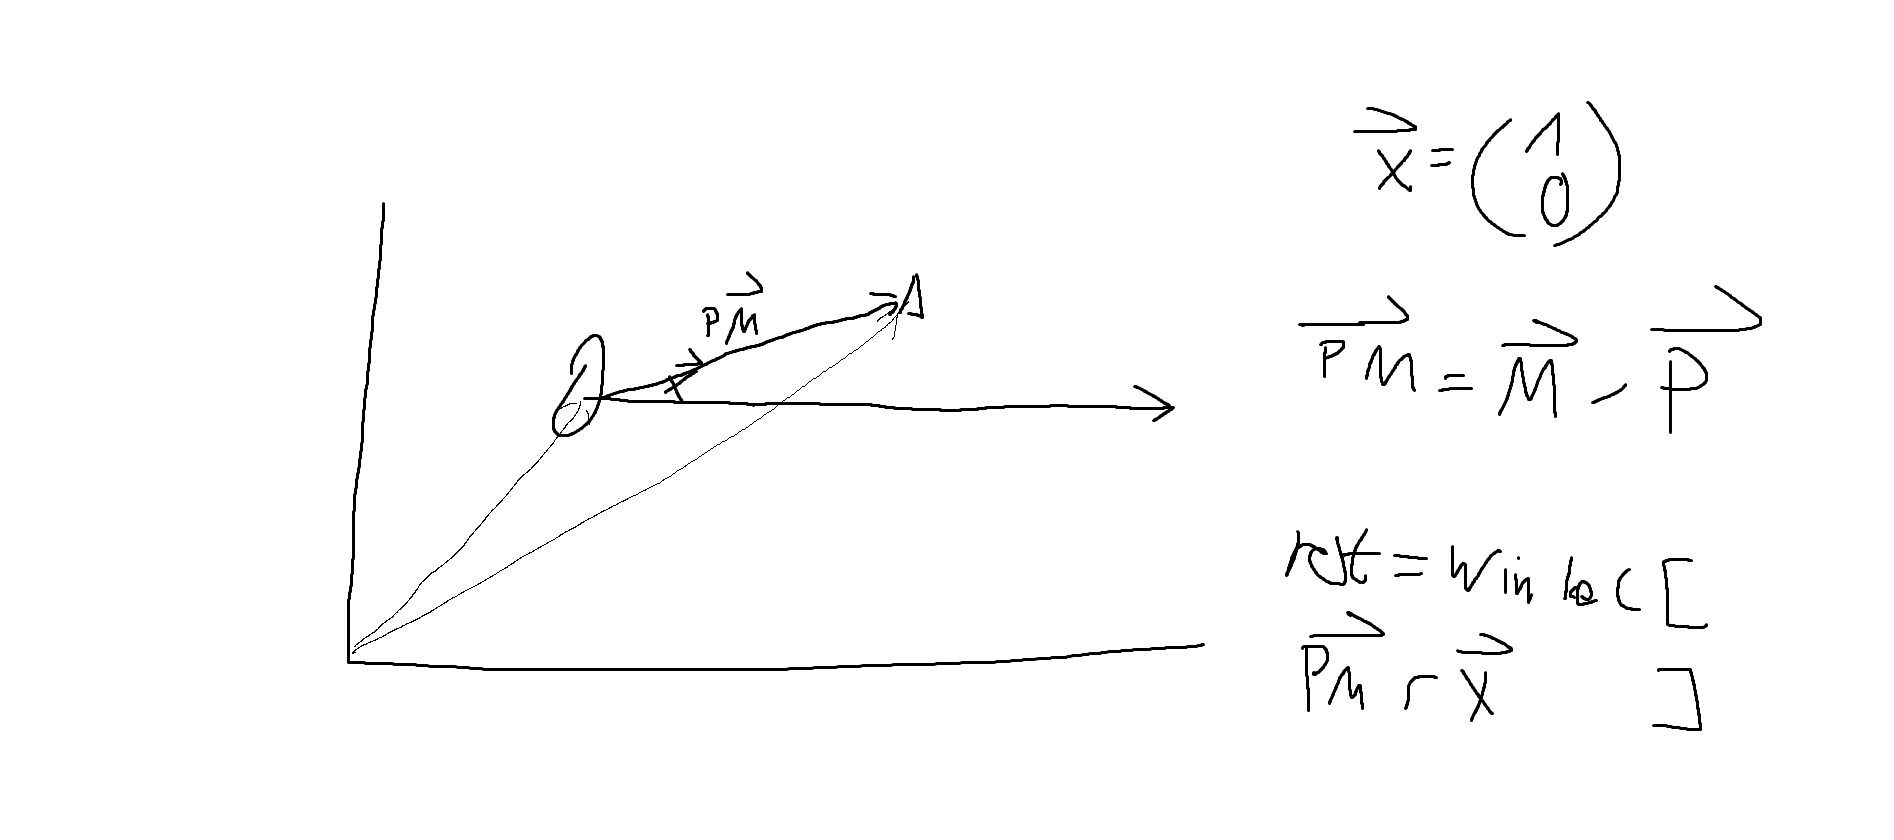 PM
x = (1
0)
PM = M - P
rot = Winkel [
PM , x ]